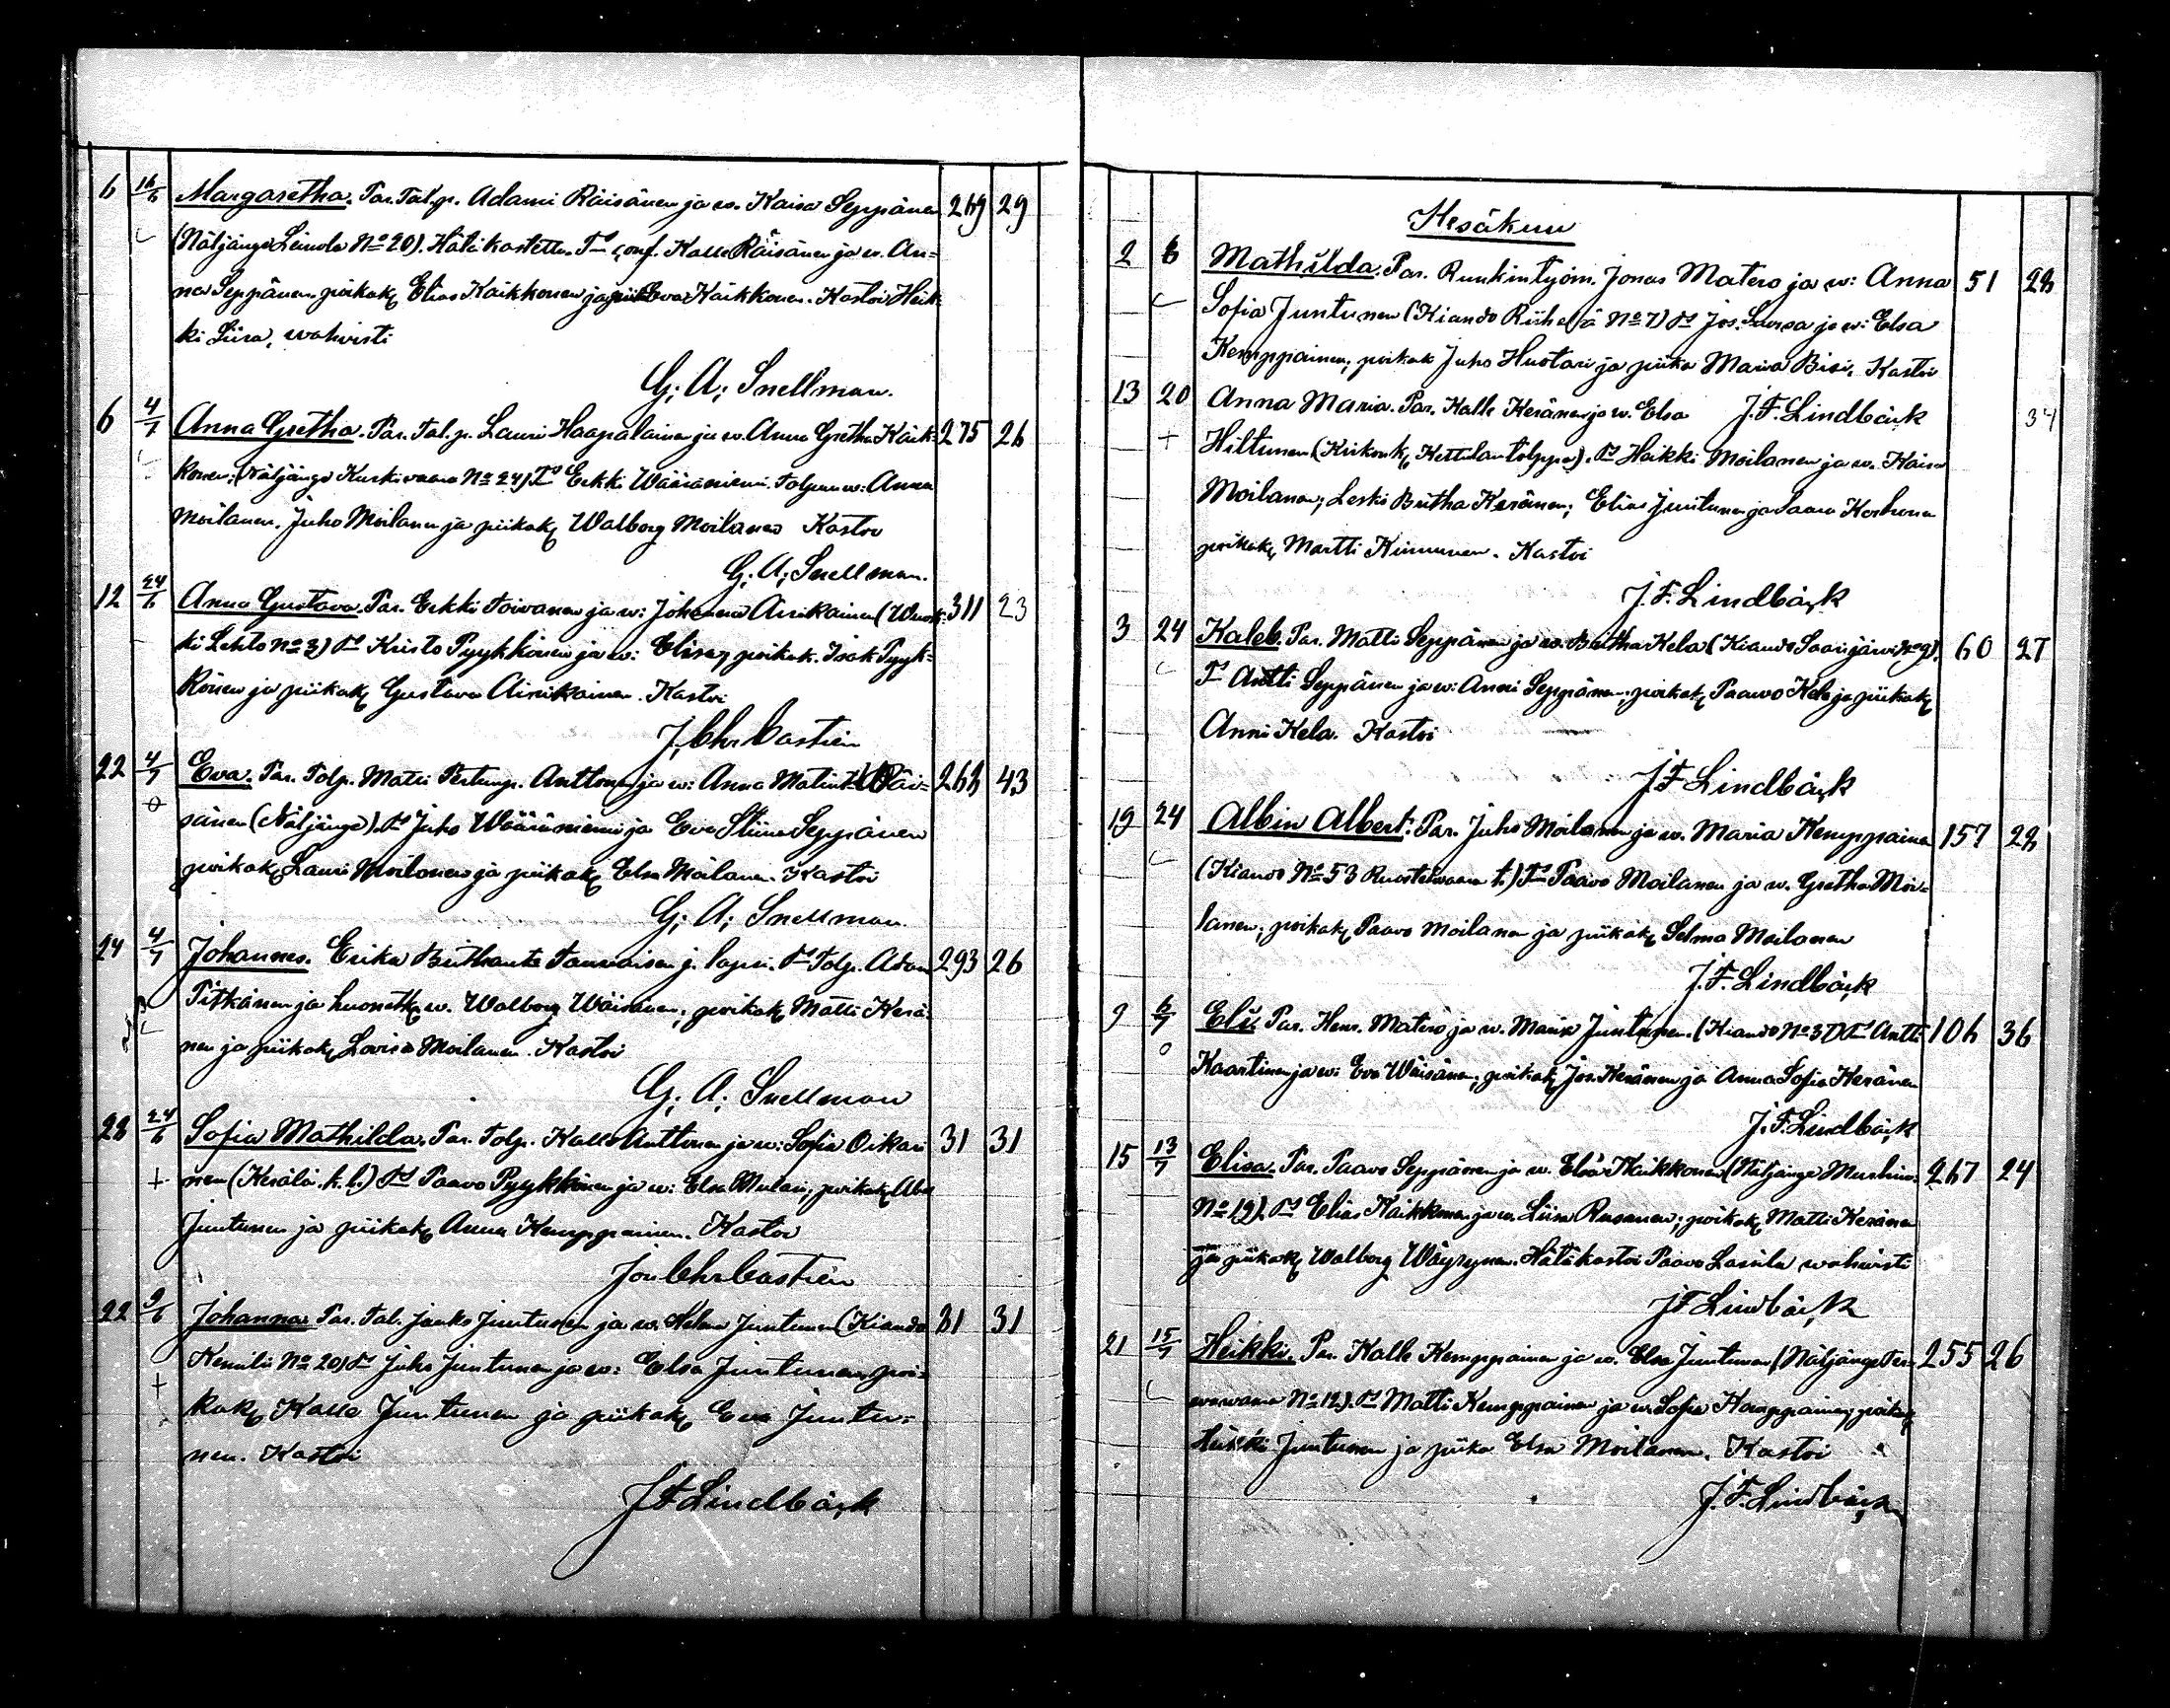 6 16/6 Margaretha. Par. Tal.p. Adami Räisänen ja w. Kaisa Seppänen 269 29
(Näljänge Leinola No 20). Hätäkastettu. Ts Conf. Kalle Räisänen ja w. An=
na Seppänen, poikak. Elias Kaikkonen ja piik. Eva Kaikkonen. Kastoi Heik=
ki Liira, wahvisti
G. A. Snellman.
6 4/7 Anna Gretha. Par. Tal.p. Lauri Haapalainen ja w. Anna Gretha Kaik= 275 26
konen, (Näljänge Kurkivaara No 24) Ts Erkki Wääräniemi. Talp. w: Anna
Moilanen. Juho Moilanen ja piikak. Walborg Moilanen Kastoi
G. A. Snellman.
12 24/6 Anna Gustava. Par. Erkki Toivanen ja w: Johanna Airikainen (Wuok= 311 23
ki Lehto No 3) Ts Kristo Pyykkönen ja w: Elisa, poikak. Isak Pyyk=
könen ja piikak. Gustava Airikainen. Kastoi
J. Chr Castrén
22 4/7 Eva. Par. Talp. Matti Pertunp. Anttonen ja w: Anna Matint. Räi= 268 43
sänen (Näljänge). Ts Juho Wääräniemi ja Eva Stiina Seppänen
poikak. Lauri Moilanen ja piikak. Elsa Moilanen. Kastoi
G. A. Snellman.
24 4/7 Johannes. Erika Brithantr. Tauriaisen j. lapsi. Ts Talp. Adam 293 26
Pitkänen ja huonetk. w. Walborg Wäisänen, poikak. Matti Kerä=
nen ja piikak. Lovisa Moilanen. Kastoi
G. A. Snellman
28 24/6 Sofia Mathilda. Par. Talp. Kalle Anttonen ja w: Sofia Oikari 31 31
nen (Kerälä. k. l.) Ts Paavo Pyykkönen ja w: Elsa Mulari, poikak. Abel
Juntunen ja piikak. Anna Kemppainen. Kastoi
Joh Chr Castrén
22 9/6 Johanna. Par. Tal. Jaako Juntunen ja w. Helena Juntunen (Kiando 31 31
Kemilä No 20) Ts Juho Juntunen ja w: Elsa Juntunen, poi=
kak. Kalle Juntunen ja piikak. Eva Juntu=
nen. Kastoi
J F Lindbäck
Kesäkuu
2 6 Mathilda. Par. Ruukintyöm. Jonas Matero ja w: Anna 51 28
Sofia Juntunen (Kiando Riihelä No 7) Ts Jos. Laursa ja w: Elsa
Kemppainen, poikak Juho Huotari ja piika Maria Bisi. Kastoi
13 20 Anna Maria. Par. Kalle Keränen ja w. Elsa J. F. Lindbäck 34
Hiltunen (Kirkonk. Kettulantölppä). Ts Heikki Moilanen ja w. Kaisa
Moilanen; Leski Britha Keränen; Elias Juntunen ja Saara Korhonen
poikak. Martti Kinnunen. Kastoi
J. F. Lindbäck
3 24 Kaleb. Par. Matti Seppänen ja w. Britha Kela (Kiando Saarijärvi No 9). 60 27
Ts Antti Seppänen ja w: Anni Seppänen, poikak. Paavo Kela ja piikak.
Anni Kela. Kastoi
J F Lindbäck
19 24 Albin Albert. Par. Juho Moilanen ja w. Maria Kemppainen 157 28
(Kiando No 53 Ruostevaara t.) Ts Paavo Moilanen ja w. Gretha Moi=
lanen, poikak. Paavo Moilanen ja piikak. Selma Moilanen
J. F. Lindbäck
9 6/7 Eli. Par. Henr. Matero ja w. Maria Juntunen. (Kiando No 37) Ts Antti 106 36
Kaartinen ja w: Eva Wäisänen, poikak. Jos. Keränen ja Anna Sofia Keränen
J. F. Lindbäck
15 13/7 Elisa. Par. Paavo Seppänen ja w. Elsa Kaikkonen (Näljänge Murhi 267 24
No 19). Ts Elias Kaikkonen ja w. Liisa Rusanen; poikak. Matti Keränen
ja piikak. Walborg Wäyrynen. Hätäkastoi Paavo Lassila wahvisti
J F Lindbäck
21 15/7 Heikki. Par. Kalle Kemppainen ja w. Elsa Juntunen (Näljänge Ter= 255 26
wawaara No 12). Ts Matti Kemppainen ja w. Sofia Kemppainen, poikak.
Heikki Juntunen ja piika Elsa Moilanen. Kastoi
J. F. Lindbäck